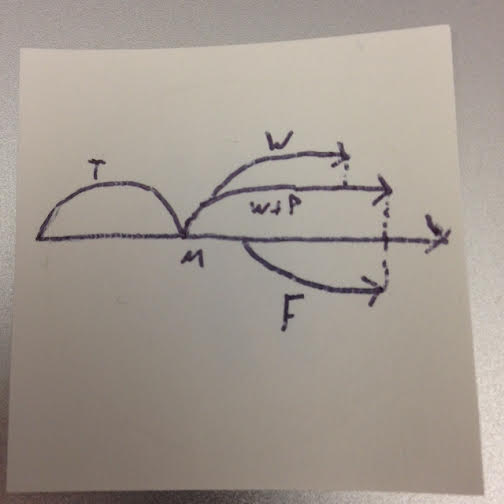 T
W
W+P
M
F